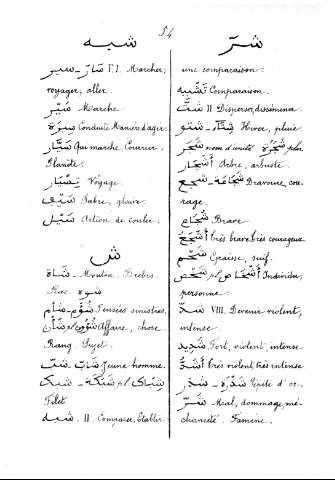 54
شبه
سَارَ - سير F.I. Marcher,
voyager; aller.
سَيْر Marche
سِيرَة Conduite Manière d'agir.
سَيَّار Qui marche. Courrier.
Planète
تِسْيَار Voyage.
سَيْف Sabre, glaive
سَيْل Action de couler.
ش
شَاة - Mouton. Brebis.
شوه
شُؤْم - شأم Pensées sinistres.
شَأْن pl شُؤُون Affaire, chose
Rang Sujet.
شَابّ - شبّ Jeune homme.
شبك - شَبَكَة pl شِبَاك
Filet
شبه. II. Comparer, Etablir
شرّ
une comparaison.
تَشْبِيه Comparaison.
شَتَّ II Disperser, disséminer.
شتو - شِتَاء Hiver, pluie.
شَجَر nom d'unité شَجَرَة plur
أَشْجَار Arbre, arbuste.
شجع - شَجَاعَة Bravoure, cou-
rage.
شُجَاع Brave
أَشْجَع très brave très courageux
شَحْم Graisse, suif.
شَخْص pl أَشْخَاص Individu,
personne.
شدّ VIII. Devenir violent,
intense.
شَدِيد Fort, violent, intense.
أَشَدّ très violent très intense
شذر - شَذْرَة Pépite d'or.
شَرّ Mal, dommage, mé-
chanceté. Famine.